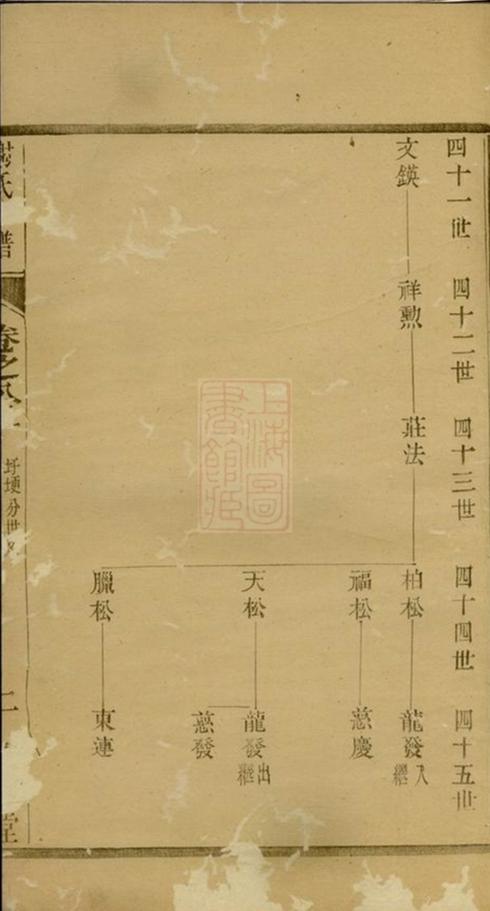 四十一世 四十二世 四十三世 四十四世 四十五世
文鍈 祥勲 莊法 柏松 龍發 入繼
福松 慈慶
天松 龍發 出繼
慈發
臘松 東連
氏 譜 卷之 圩埂分世 二 堂
上海圖書館藏